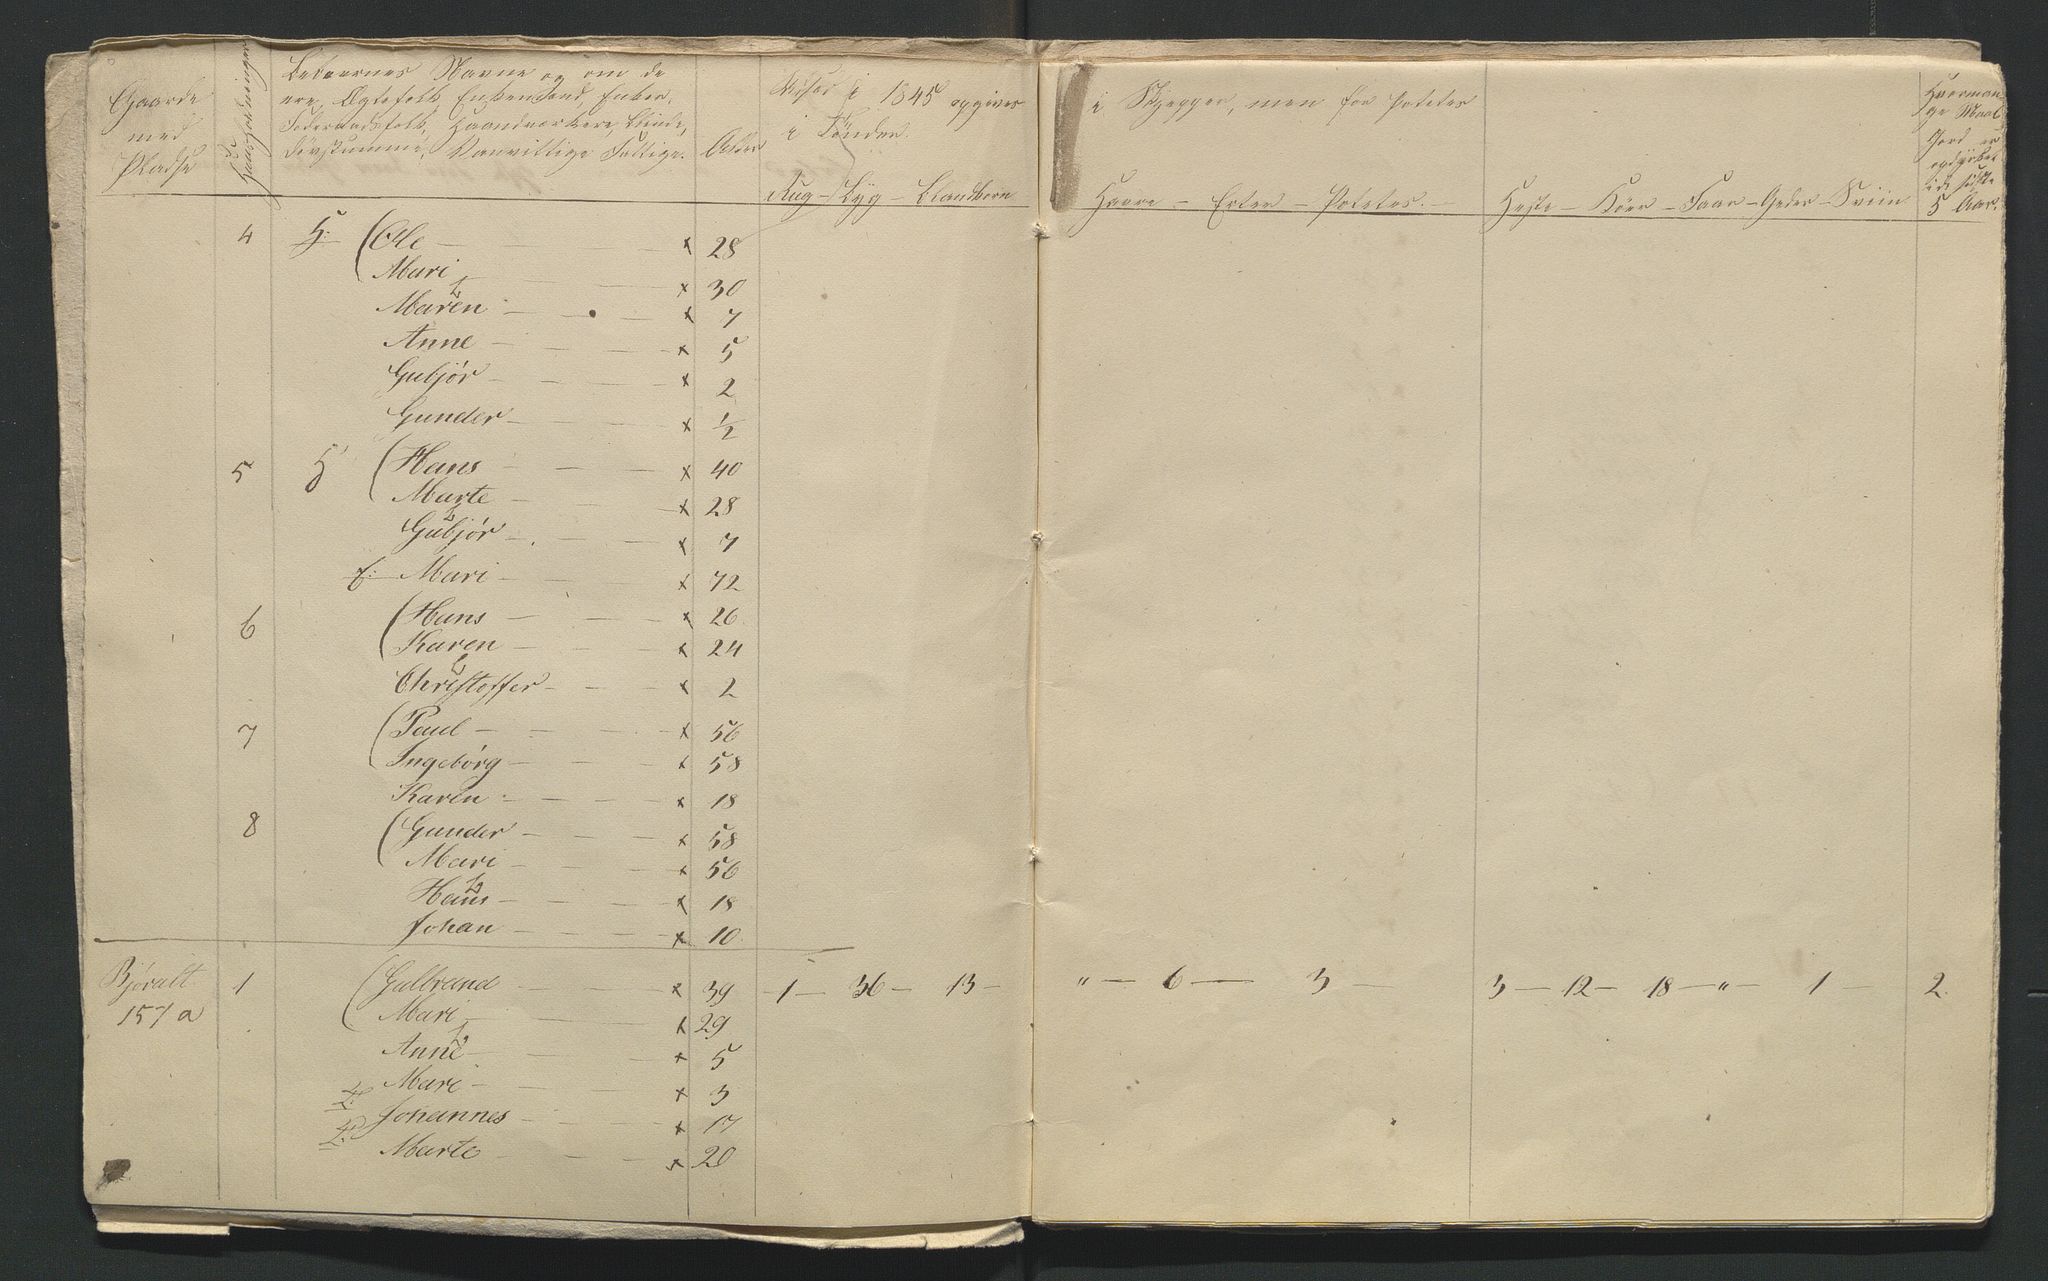 Gaarde
med
Pladse
Huusholdninger
Beboernes Navne og om de
ere, Ægtefolk, Enkemænd, Enker,
Føderaadsfolk, Haandværkere, Blinde,
Døvstumme, Vanvittige Fattige.
Alder
1845 opgives
i Tønder.
Rug - Byg - Blandkorn
i Skjepper, men for Poteter
Havre - Erter - Poteter. -
Heste - Köer - Faar - Geder - Sviin
Hvorman-
ge Maal
Jord er
opdyrket
i de sidste
5 Aar.
4 H: Ole x 28
Mari x 30
Maren x 7
Anne x 5
Gubjör x 2
Gunder x 1/2
5 H Hans x 40
Marte x 28
Gubjör x 7
f: Mari x 72
6 Hans x 26
Karen x 24
Christoffer x 2
7 Paul x 56
Ingebórg x 58
Karen x 18
8 Gunder x 58
Mari x 56
Hans x 18
Johan x 10
Bjóralt 1 Gulbrand x 39 - 1 - 36 - 13 - " - 6 - 3 - 3 - 12 - 18 - " - 1 - 2.
157 a Mari x 29
Anne x 5
Mari x 3
Johannes x 17
Marte x 20